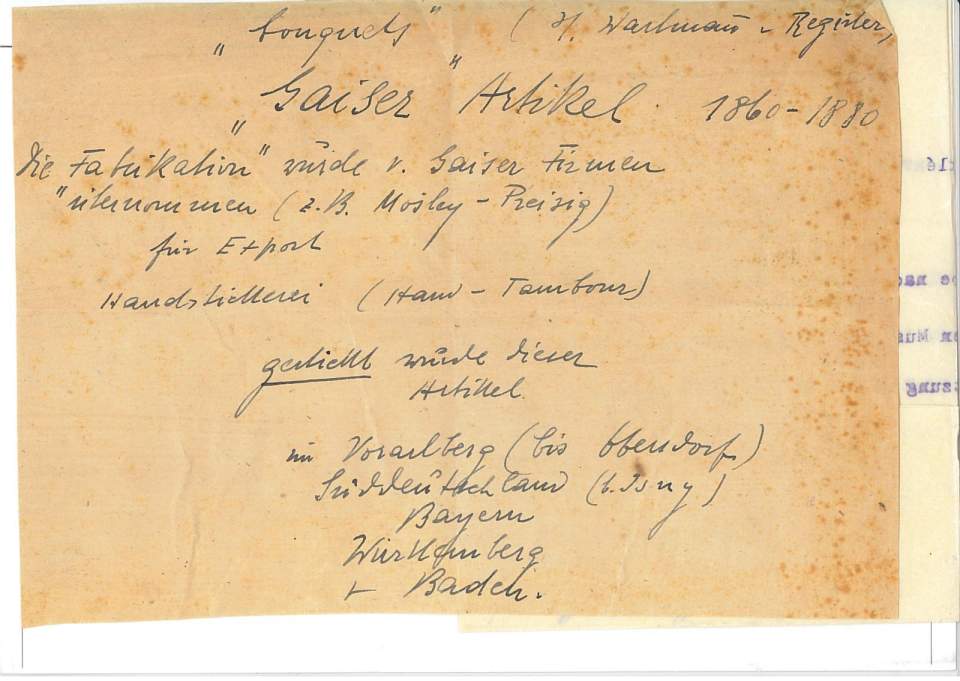 „bouquets“ (s. Wartmann - Register,
„Gaiser“ Artikel. 1860-1880
„Die Fabrikation“ wurde v. Gaiser Firmen
"übernommen (z.B. Mosley-Preisig)
für Export
Handstickerei (Hand-Tambour)
gestickt wurde dieser
Artikel
im Vorarlberg (bis Oberstdorf)
Süddeutschland (b. Isny)
Bayern
Württemberg
+ Baden.